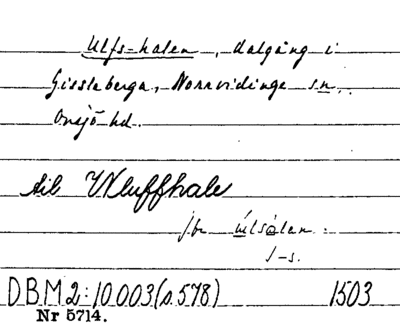 Ulfs-halen, dalgång i
Gissleberga, Norrvidinge sn,
Onsjö hd.
till Wluffhale
jbr ulsalen :
1-s.
DBM 2:10.003 (s.578) 1503
Nr 5714.